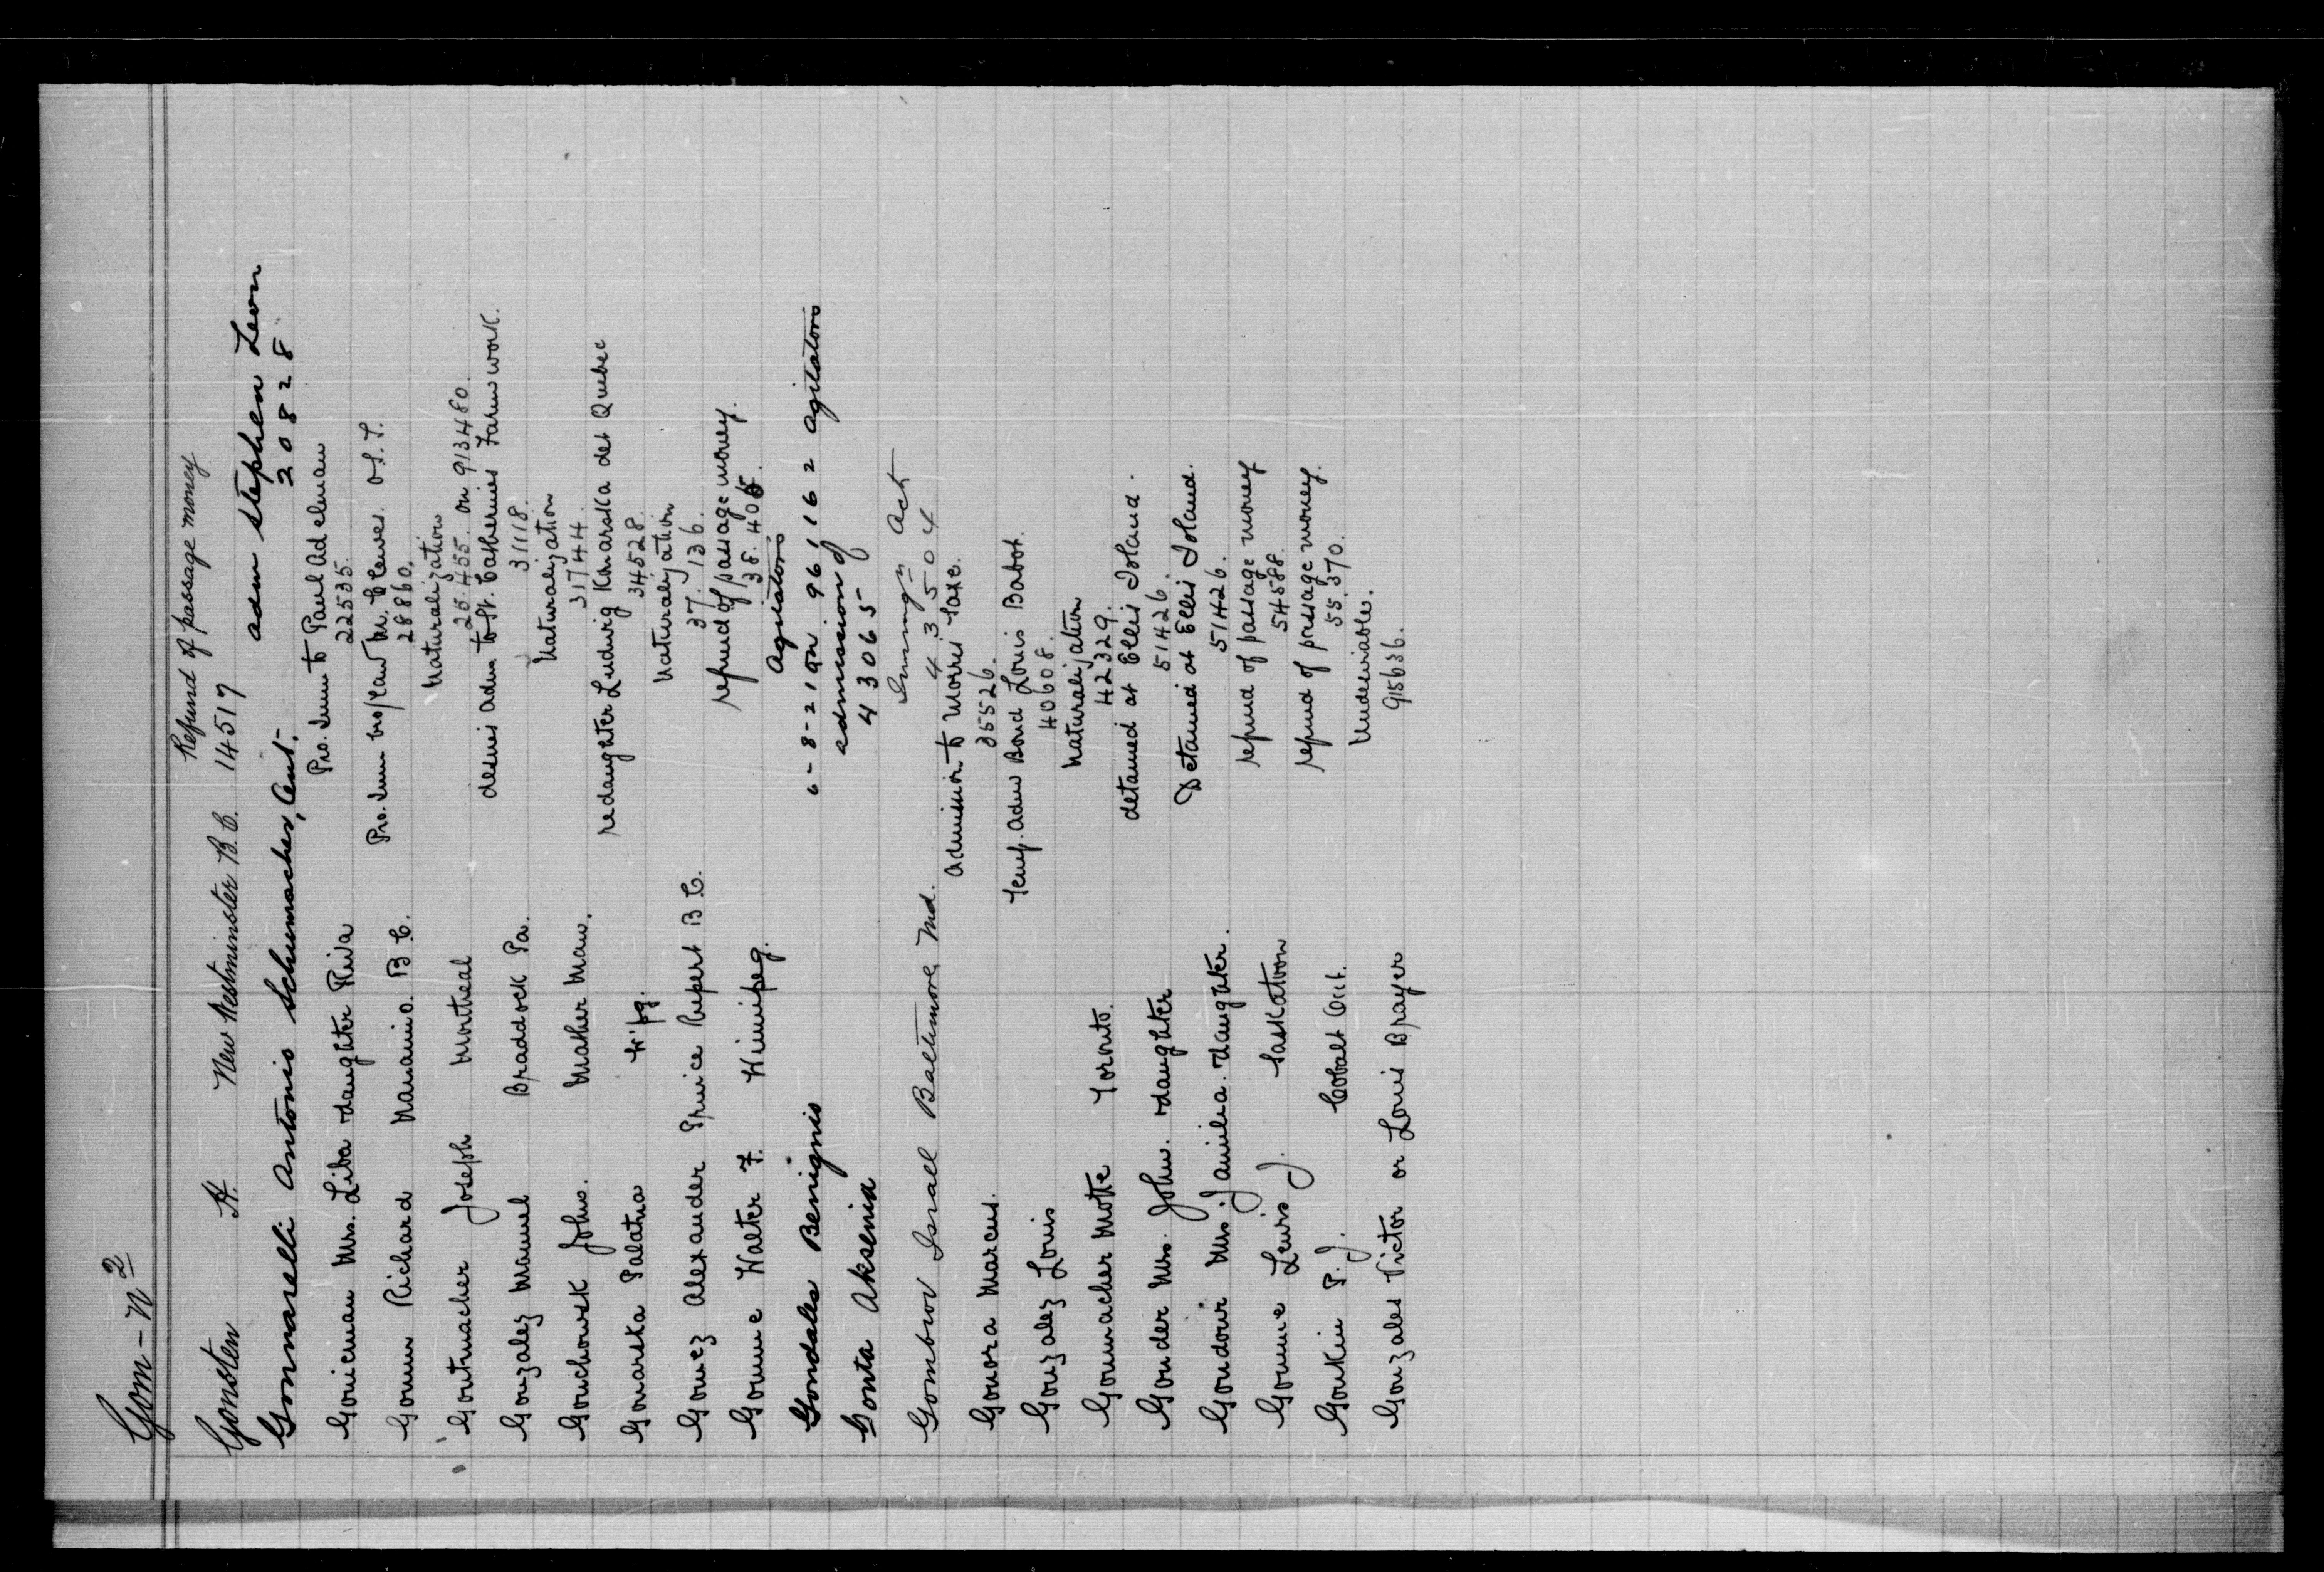 Gom-n 2
Refund of passage money
Gonsten H. New Westminster B.C. 14517
Gonnarelli Antonio Schumacher, Ont. adm Stephen Leon
20828
Gonicman Mrs. Liba & daughter Riva Pro. Imm to Paul Adelman
22535.
Gonn Richard Nanaimo. B.C. Pro. Imm
28860.
Gontmacher Joseph Montreal Naturalization
25.455. on 913480.
Gonzalez Manuel Braddock Pa. desires adm to St. Catherines Farm work.
31118.
Gonchowsk John. Mather Man. Naturalization
31744.
Gonarska Palatna W'pg. re daughter Ludwig Konarska det Quebec
34528.
Gomez Alexander Prince Rupert B.C. Naturalization
37.136.
Gomme Walter F. Winnipeg. refund of passage money.
38.405.
Gondales Benignis Agitators
6-8-21 on 961162 Agitators
Gonta Aksenia admission of
43065
Gombov Israel Baltimore, Md. Immigⁿ Act
435504
Gonora Marcus. Admission to Morris Saxe.
35526.
Gonzalez Louis Temp. adm Bond Louis Babot.
40608.
Gonmacher Motte Toronto. Naturalization
42329.
Gonder Mrs. John. & daughter detained at Ellis Island.
51426.
Gondour Mrs. Jamilia. & daughter. Detained at Ellis Island.
51426.
Gomme Lewis J. Saskatoon refund of passage money
54588.
Gonkin P. J. Cobalt Ont. refund of passage money.
55.370.
Gonzales Victor or Louis Brayer Undesirable.
915636.